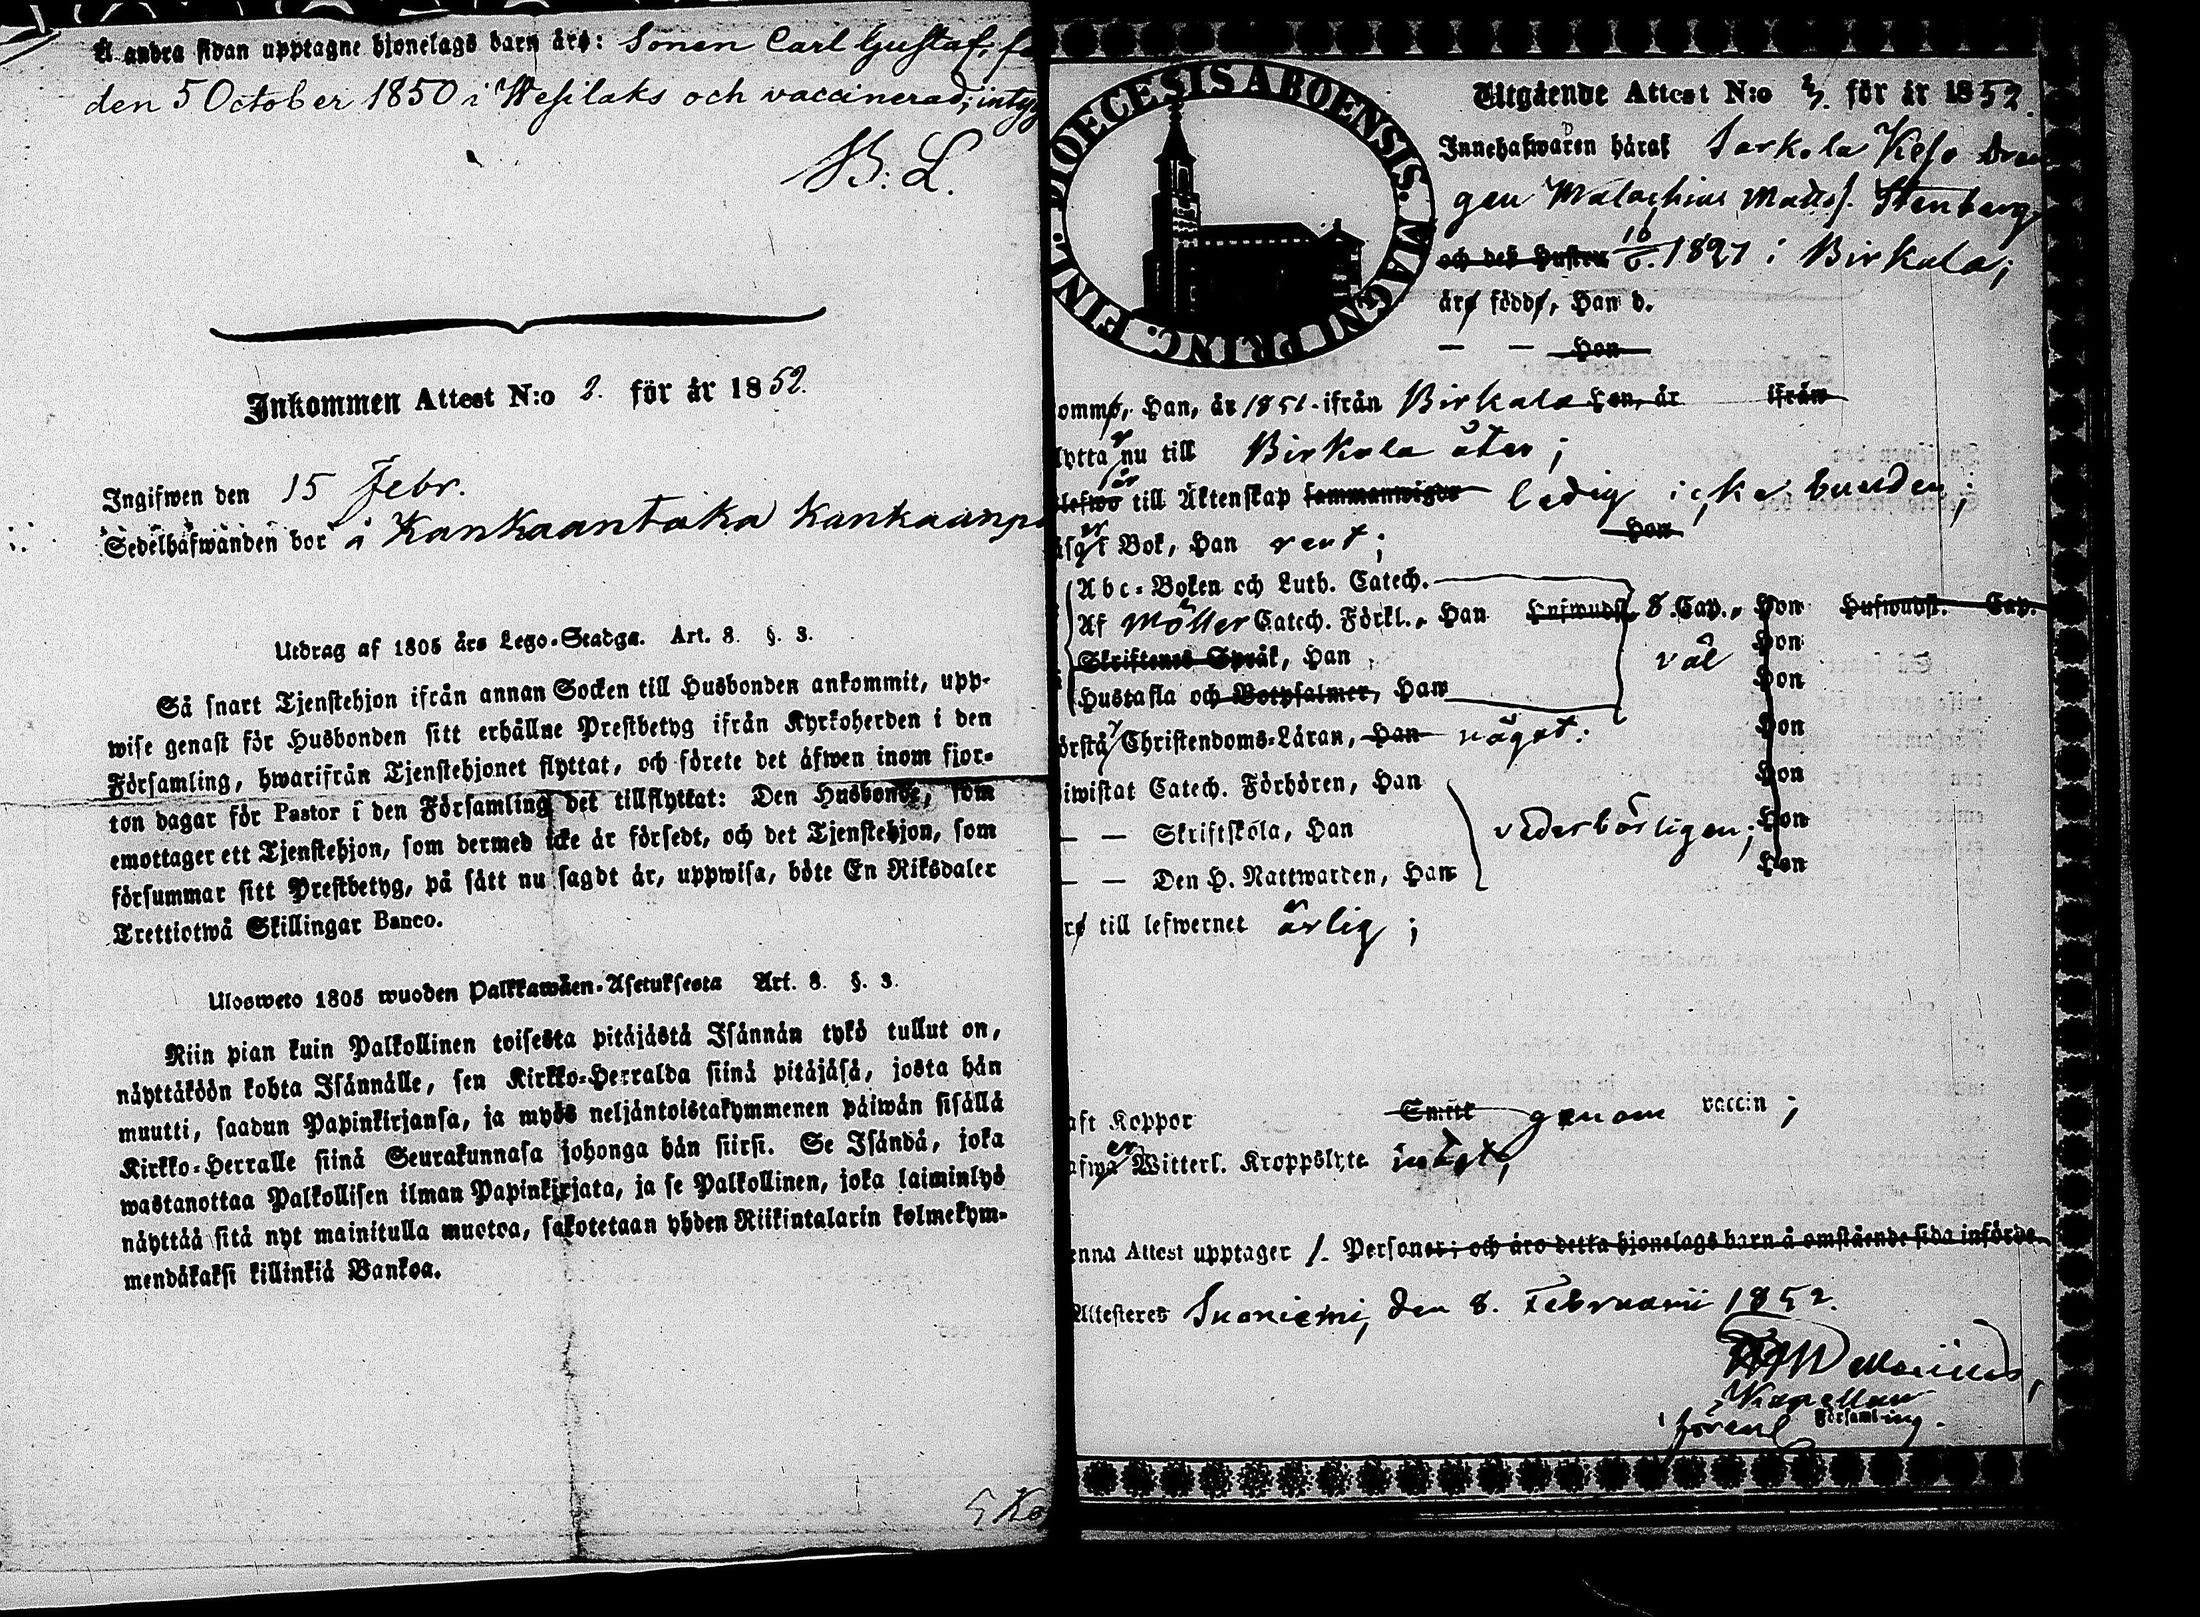 Å andra sidan upptagne hjonelags barn äro: Sonen Carl Gustaf, f
den 5 October 1850 i Wesilaks och vaccinerad; intyg
B: L.
Inkommen Attest N:o 2. för år 1852.
Ingifwen den 15 Febr.
Sedelhafwanden bor å Kankaantaka Kankaanp
Utdrag af 1805 års Lego-Stadga. Art. 8. §. 3.
Så snart Tjenstehjon ifrån annan Socken till Husbonden ankommit, upp-
wise genast för Husbonden sitt erhållne Prestbetyg ifrån Kyrkoherden i den
Församling, hwarifrån Tjenstehjonet flyttat, och förete det äfwen inom fjor-
ton dagar för Pastor i den Församling det tillflyttat: Den Husbonde, som
emottager ett Tjenstehjon, som dermed icke är försedt, och det Tjenstehjon, som
försummar sitt Prestbetyg, på sätt nu sagdt är, uppwisa, böte En Riksdaler
Trettiotwå Skillingar Banco.
Ulosweto 1805 wuoden Palkkawäen-Asetuksesta Art. 8. §. 3.
Niin pian kuin Palkollinen toisesta pitäjästä Isännän tykö tullut on,
näyttäköön kohta Isännälle, sen Kirkko-Herralda siinä pitäjäsä, josta hän
muutti, saadun Papinkirjansa, ja myös neljäntoistakymmenen päiwän sisällä
Kirkko-Herralle siinä Seurakunnasa johonga hän siirsi. Se Isändä, joka
wastanottaa Palkollisen ilman Papinkirjata, ja se Palkollinen, joka laiminlyö
näyttää sitä nyt mainitulla muotoa, sakotetaan yhden Riikintalarin kolmekym-
mendäkaksi killinkiä Bankoa.
DIOECESIS ABOENSIS. MAGNI PRINC. FINL.
Utgående Attest N:o 3. för år 1852.
Innehafwaren häraf Sarkola Keso Dren
gen Malachias Matts. Stenberg,
och desß Hustru 10/6. 1827 i Birkala;
äro födde, Han d.
— — Hon
komme, Han, år 1851. ifrån Birkala Hon, år ifrån
flyttar nu till Birkala åter;
lefwo är till Äktenskap sammanwigde ledig icke bunden;
läser i Bok, Han rent; Hon
Abc-Boken och Luth. Catech.
Af Möller Catech. Förkl., Han Hufwudst. 8. Cap., Hon Hufwudst. Cap.
Skriftenes Språk, Han väl Hon
Hustafla och Botpsalmer, Han Hon
förstår Christendoms-Läran, Han något: Hon
biwistat Catech. Förhören, Han Hon
— — Skriftskola, Han vederbörligen; Hon
— — Den H. Nattwarden, Han Hon
äro till lefwernet ärlig;
haft Koppor Smitt genom vaccin;
hafwa er Witterl. Kroppslyte intet,
Denna Attest upptager 1. Personer; och äro detta hjonelags barn å omstående sida införde.
Attesteres Suoniemi, den 8. Februarii 1852.
Kapellan
Församl-ing.